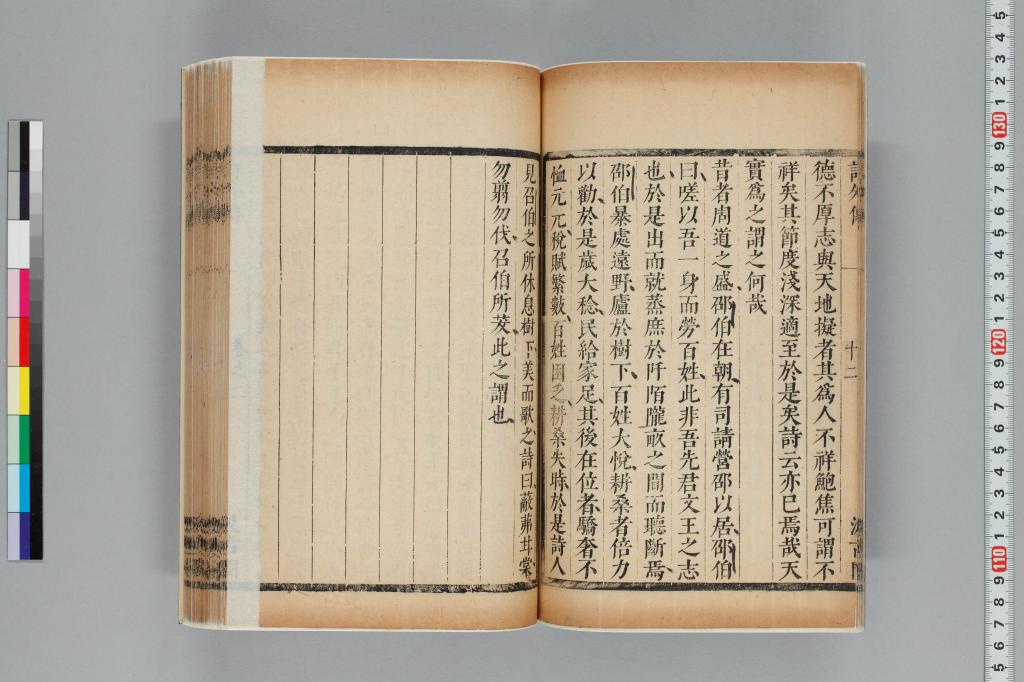 詩外傳
十二
汲古閣
德不厚志與天地擬者其爲人不祥鮑焦可謂不
祥矣其節度淺深適至於是矣詩云亦已焉哉天
實爲之謂之何哉
昔者周道之盛邵伯在朝有司請營邵以居邵伯
曰嗟以吾一身而勞百姓此非吾先君文王之志
也於是出而就蒸庶於阡陌隴畝之間而聽斷焉
邵伯暴處遠野廬於樹下百姓大悅耕桑者倍力
以勸於是歲大稔民給家足其後在位者驕奢不
恤元元稅賦繁數百姓困乏耕桑失時於是詩人
見召伯之所休息樹下美而歌之詩曰蔽茀甘棠
勿翦勿伐召伯所茇此之謂也
5
4
3
2
1
130
9
8
7
6
5
4
3
2
1
120
9
8
7
6
5
4
3
2
1
110
9
8
7
6
5